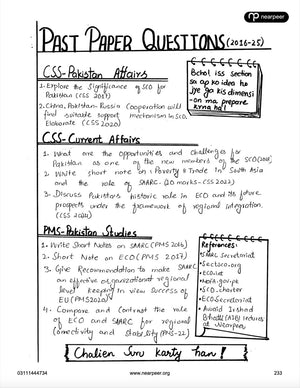 nearpeer
PAST PAPER QUESTIONS (2016-25)
CSS-Pakistan Affairs
1. Explore the Significance of SCO for
Pakistan (CSS 2017)
2. China, Pakistan-Russia Cooperation will
find suitable support mechanism in SCO.
Elaborate (CSS 2020)
Bcho! iss section
sa ap ko idea ho
jye ga kis dimensi
-on ma prepare
kryna ha!
CSS-Current Affairs
1. What are the opportunities and challenges for
Pakistan as one of the new members of the SCO
2. Write short note on: Poverty & Trade in South Asia
and the role of SAARC. (20 marks-CSS 2022)
3. Discuss Pakistan's historic role in ECO and its future
prospects under the framework of regional integration.
PMS-Pakistan Studies
1. Write Short Notes on SAARC (PMS 2016)
2. Short Note on ECO (PMS 2017)
3. Give Recommendation to make SAARC
an effective organizational regional
level keeping in view success of
EU (PMS 2020)
4. Compare and Contrast the role
of ECO and SAARC for regional
connectivity and Stability (PMS-22)
References:
SAARC Secretariat
Sectsco.org
ECO.int
Mofa.gov.pk
SCO charter
ECO Secretariat
Awaid Irshad
Bhatti (AIB) lectures
at Nearpeer
Chalien Suru karty han!
03111444734
www.nearpeer.org
233